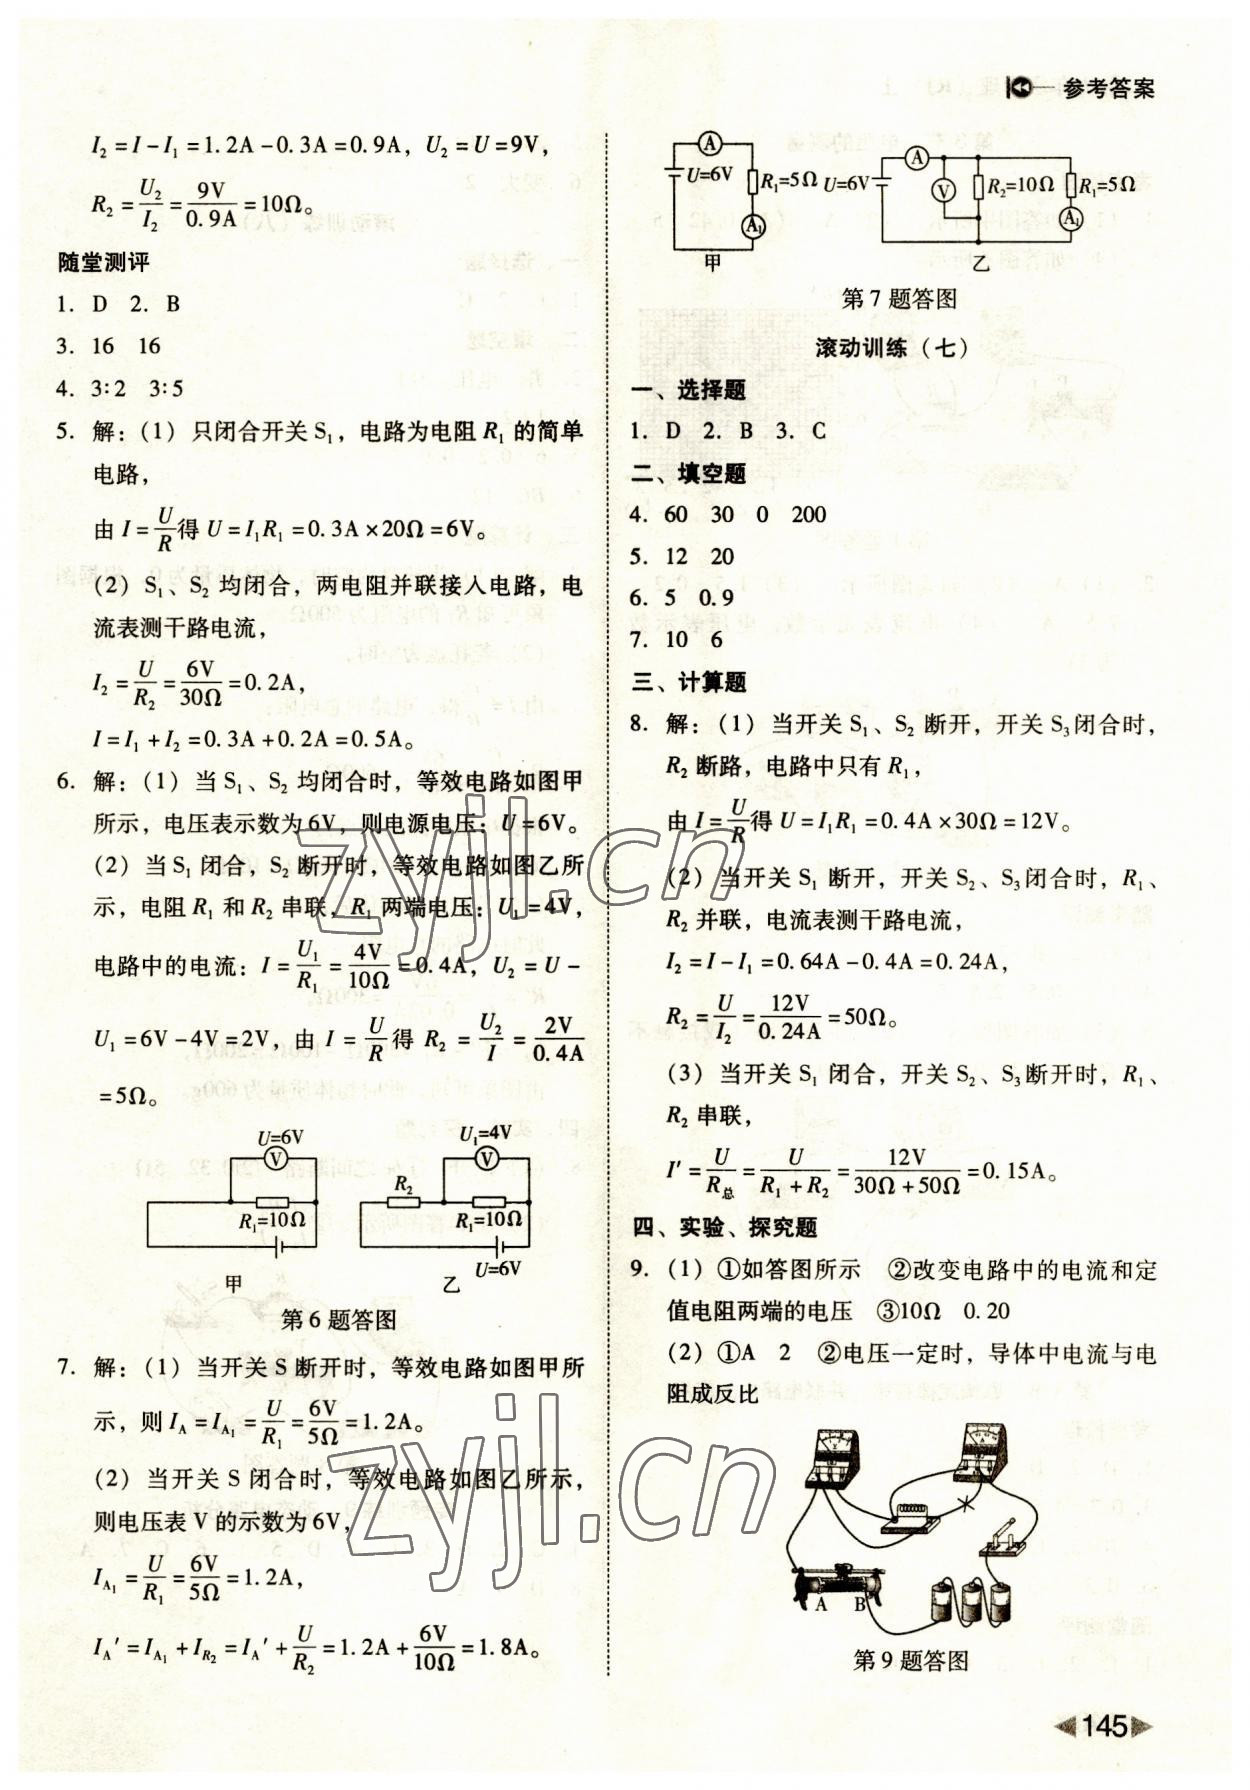 参考答案
I₂=I-I₁=1.2A-0.3A=0.9A，U₂=U=9V，
R₂=U₂/I₂=9V/0.9A=10Ω。
随堂测评
1. D 2. B
3. 16 16
4. 3∶2 3∶5
5. 解：(1) 只闭合开关S₁，电路为电阻R₁的简单
电路，
由I=U/R得U=I₁R₁=0.3A×20Ω=6V。
(2) S₁、S₂均闭合，两电阻并联接入电路，电
流表测干路电流，
I₂=U/R₂=6V/30Ω=0.2A，
I=I₁+I₂=0.3A+0.2A=0.5A。
6. 解：(1) 当S₁、S₂均闭合时，等效电路如图甲
所示，电压表示数为6V，则电源电压：U=6V。
(2) 当S₁闭合，S₂断开时，等效电路如图乙所
示，电阻R₁和R₂串联，R₁两端电压：U₁=4V，
电路中的电流：I=U₁/R₁=4V/10Ω=0.4A，U₂=U-
U₁=6V-4V=2V，由I=U/R得R₂=U₂/I=2V/0.4A
=5Ω。
U=6V
V
R₁=10Ω
甲
U₁=4V
V
R₂
R₁=10Ω
U=6V
乙
第6题答图
7. 解：(1) 当开关S断开时，等效电路如图甲所
示，则I_A=I_A₁=U/R₁=6V/5Ω=1.2A。
(2) 当开关S闭合时，等效电路如图乙所示，
则电压表V的示数为6V，
I_A₁=U/R₁=6V/5Ω=1.2A，
I_A′=I_A₁+I_R₂=I_A′+U/R₂=1.2A+6V/10Ω=1.8A。
A
U=6V
R₁=5Ω
A₁
甲
A
U=6V
V
R₂=10Ω
R₁=5Ω
A₁
乙
第7题答图
滚动训练（七）
一、选择题
1. D 2. B 3. C
二、填空题
4. 60 30 0 200
5. 12 20
6. 5 0.9
7. 10 6
三、计算题
8. 解：(1) 当开关S₁、S₂断开，开关S₃闭合时，
R₂断路，电路中只有R₁，
由I=U/R得U=I₁R₁=0.4A×30Ω=12V。
(2) 当开关S₁断开，开关S₂、S₃闭合时，R₁、
R₂并联，电流表测干路电流，
I₂=I-I₁=0.64A-0.4A=0.24A，
R₂=U/I₂=12V/0.24A=50Ω。
(3) 当开关S₁闭合，开关S₂、S₃断开时，R₁、
R₂串联，
I′=U/R总=U/(R₁+R₂)=12V/(30Ω+50Ω)=0.15A。
四、实验、探究题
9. (1) ①如答图所示 ②改变电路中的电流和定
值电阻两端的电压 ③10Ω 0.20
(2) ①A 2 ②电压一定时，导体中电流与电
阻成反比
A B
第9题答图
145
zyjl.cn
zyjl.cn